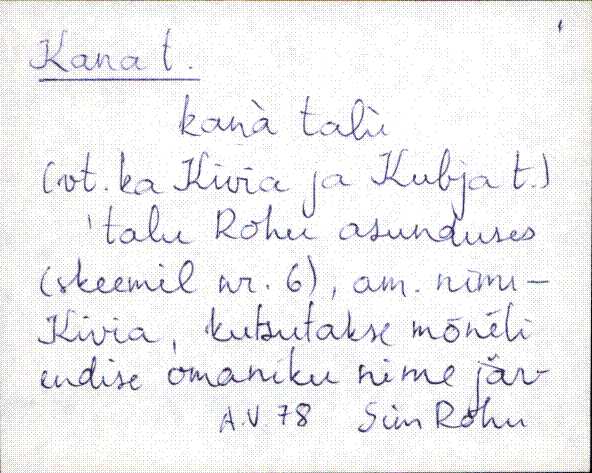 Kana t.
kanà talù
(vt. ka Kivia ja Kubja t.)
'talu Rohu asunduses
(skeemil nr. 6), am. nimi-
Kivia, kutsutakse mõnẽli
endise omaniku nime jär-
A.V 78 Sim Rohu